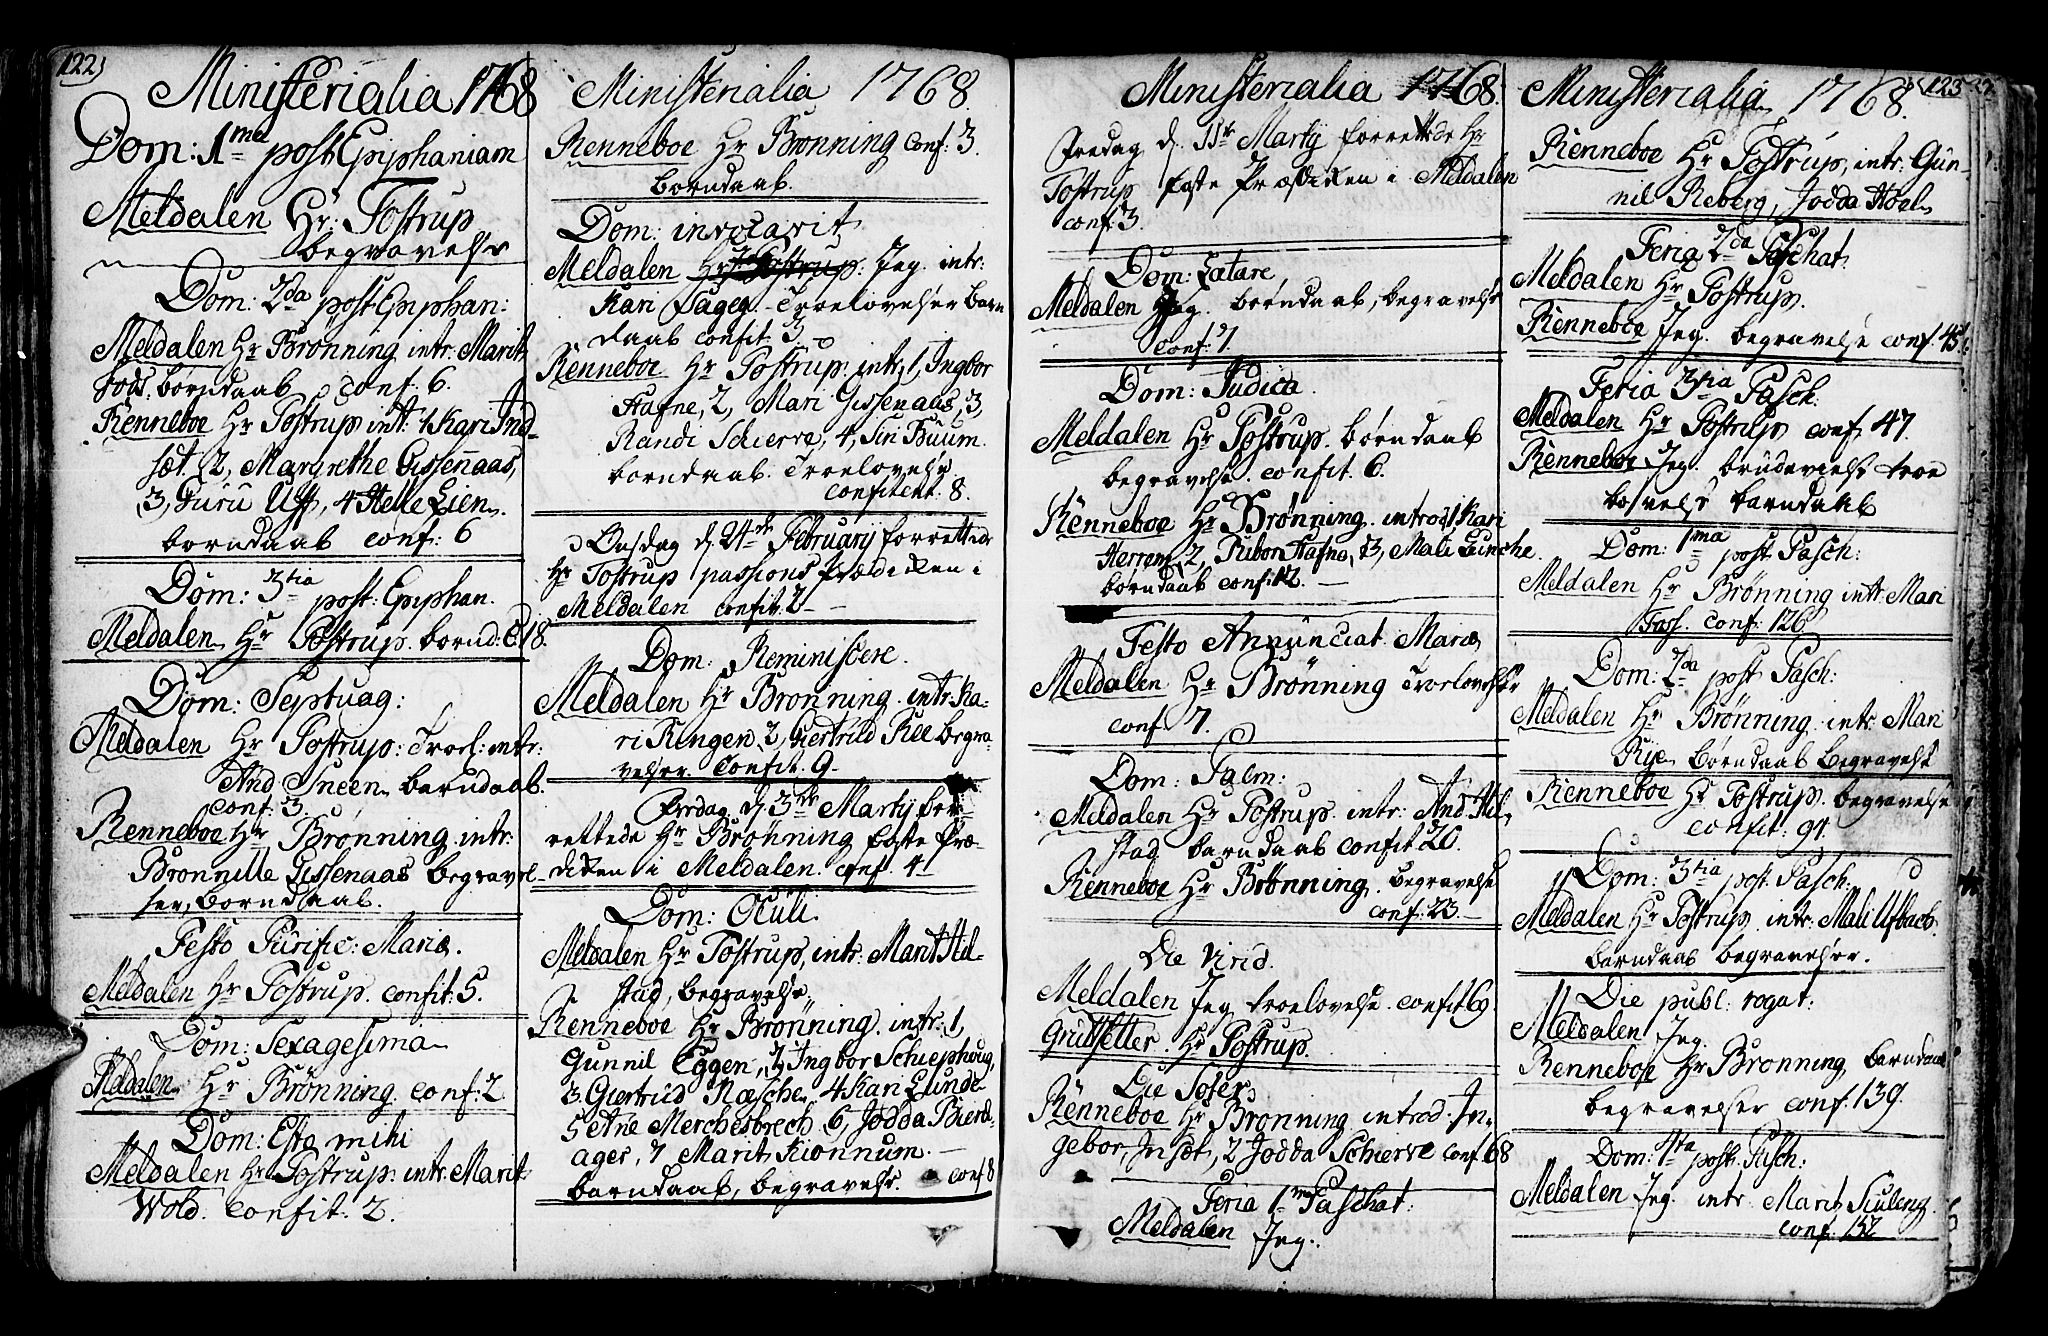 122)
Ministerialia 1768
Dom: 1me post Epiphaniam
Meldalen Hr: Tostrup
begravelse
Dom: 2da post Epiphan:
Meldalen Hr Brønning intr: Marit
børndaab conf: 6.
Renneboe Hr Tostrup int: 1 Kari Ind-
sæt 2, Margrethe Gissenaas,
3, Guru Uff, 4 Helle Lien.
borndaab conf: 6
Dom: 3tia post: Epiphan.
Meldalen Hr Tostrup. bornd: C. 18.
Dom: Septuag:
Meldalen Hr Tostrup: Troel: intr:
And Sneen barndaab.
conf: 3.
Renneboe Hr Brønning intr:
Bronnille Gissenaas begravel-
ser, borndaab.
Festo Purific: Mariæ.
Meldalen Hr Tostrup. confit: 5.
Dom: Sexagesima
Meldalen Hr Brønning conf: 2.
Dom: Esto mihi
Meldalen Hr Tostrup: intr: Marit
Wold. confit: 2.
Ministerialia 1768.
Renneboe Hr Brønning conf: 3.
borndaab.
Dom: invocavit
Meldalen Hr Tostrup: Jeg. intr:
Kari Fager. Troelovelser barn
daab confit: 3.
Renneboe Hr Tostrup. intr: 1, Ingbor
Hafne, 2, Mari Gissenaas, 3,
Randi Schierve, 4, Siri Buum.
borndaab. Troelovelse.
confitent. 8.
Onsdag d. 24de February forrettede
Hr Tostrup passions prædiken i
Meldalen confit: 2
Dom: Reminiscere.
Meldalen Hr Brønning. intr: Ka-
ri Ringen, 2, Giertrud Ree begra-
velser. confit. 9.
Fredag d. 3de Martij for-
rettede Hr Brønning faste Præ-
diken i Meldalen. conf. 4
Dom: Oculi.
Meldalen Hr Tostrup, intr: Marit Hel-
stad, begravelse,
Renneboe Hr Brønning. intr: 1,
Gunnil Eggen, 2, Ingbor Schiephoug,
3 Giertrud Næsche, 4 Kari Lunde
5 Ane Merchesbrech 6, Jodda Bierd-
ager, 7 Marit Kionnum.
barndaab, begravelse. conf 8
Ministerialia 1768.
Fredag d. 11te Martij forrettede Hr
Tostrup faste Prædiken i Meldalen
conf: 3.
Dom: Lætare
Meldalen Jeg. børndaab, begravelse
conf: 7.
Dom: Judica.
Meldalen Hr Tostrup. børndaab
begravelse. confit. 6.
Renneboe Hr Brønning. introd 1 Kari
Herrem, 2, Ribor Hafne, 3, Mali Lunche.
børndaab confit 2.
Festo Annunciat Mariæ
Meldalen Hr Brønning Troelovelser
conf. 7.
Dom: Palm:
Meldalen Hr Tostrup. intr: And Hel-
stad barndaab confit 20.
Renneboe Hr Brønning. begravelse
conf: 23.
Die Virid.
Meldalen Jeg troelovelse. confit 69
Grutsetter. Hr Tostrup.
Die Sofer.
Renneboe Hr Brønning introd. In-
gebor, Insæt, 2 Jodda Schierve conf. 68
Feria 1me Paschat:
Meldalen Jeg.
123
Ministerialia 1768.
Renneboe Hr Tostrup, intr: Gun-
nil Reberg, Jodda Hoel.
Feria 2da Paschat:
Meldalen Hr Tostrup.
Renneboe Jeg. begravelse conf. 45
Feria 3tia Pasch:
Meldalen Hr Tostrup conf. 47.
Renneboe Jeg. brudevielse troe
barndaab
Dom: 1ma post. Pasch:
Meldalen Hr Brønning intr: Mari
Foss. conf: 126.
Dom: 2da post Pasch:
Meldalen Hr Brønning. intr. Mari
Rye. børndaab begravelse
Renneboe Hr Tostrup. begravelse
confit: 91.
Dom: 3tia post. Pasch.
Meldalen Hr Tostrup intr: Mali Ufbach.
barndaab begravelser.
Die publ: rogat:
Meldalen Jeg.
Renneboe Hr Brønning, barndaab
begravelser conf: 139.
Dom: 4ta post: Pasch:
Meldalen Jeg. intr. Marit Siuleng.
conf: 152